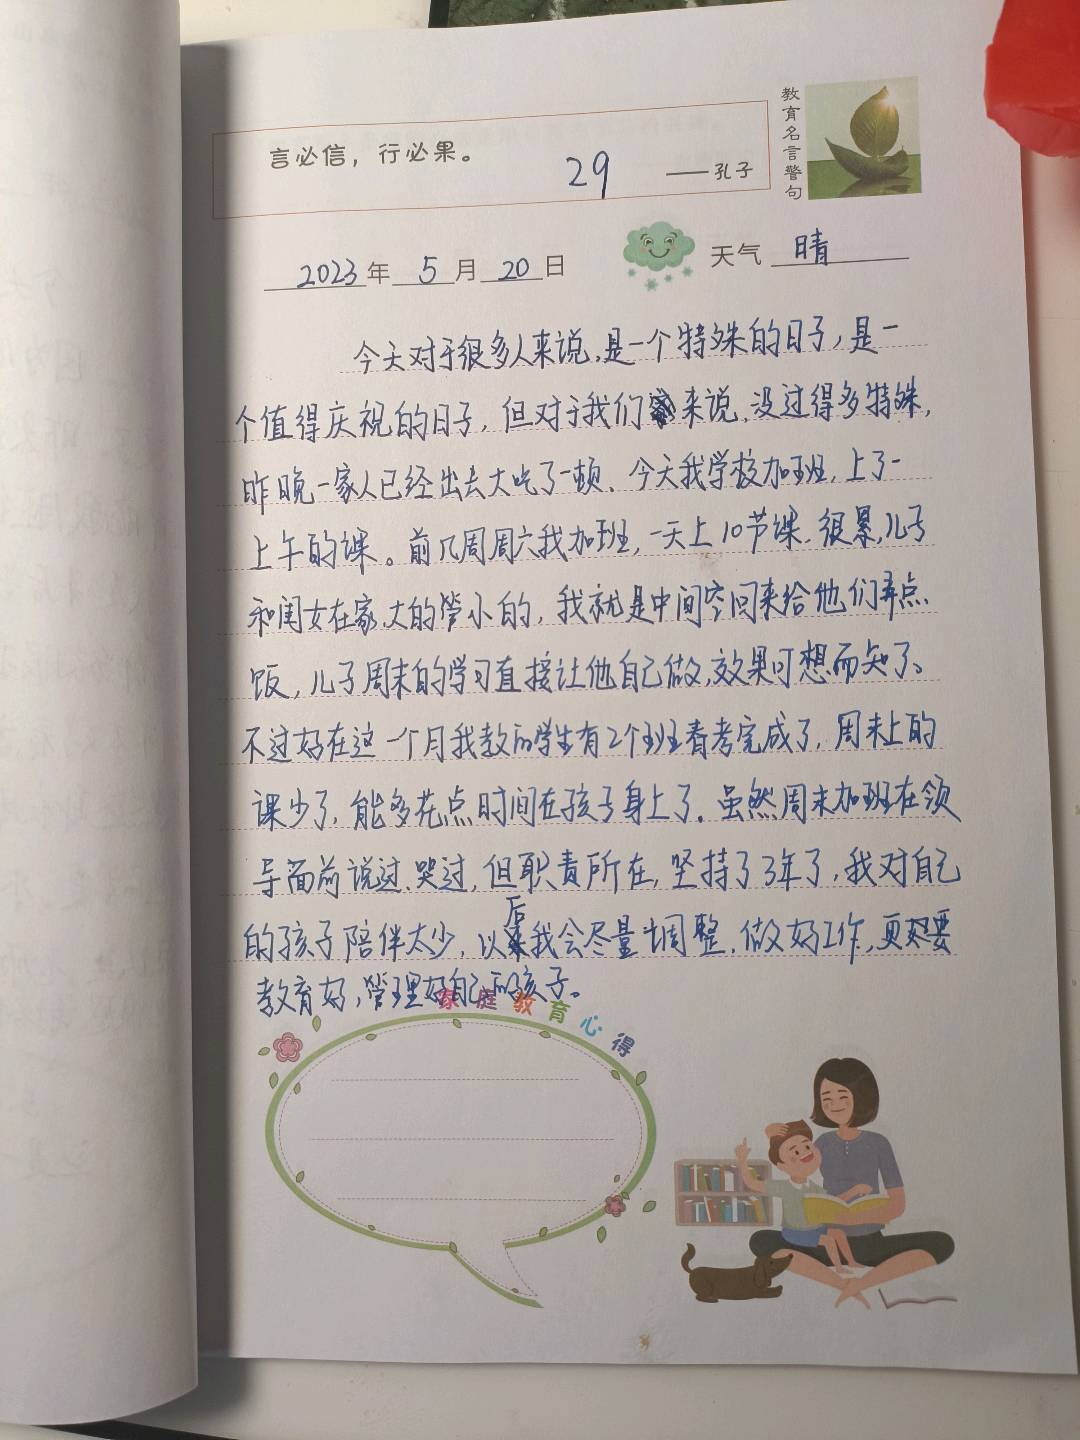 言必信，行必果。
29
——孔子
教育名言警句
2023年 5月 20日
天气 晴
今天对于很多人来说，是一个特殊的日子，是一
个值得庆祝的日子，但对于我们来说，没过得多特殊，
昨晚一家人已经出去大吃了一顿、今天我学校加班，上了一
上午的课。前几周周六我加班，一天上10节课，很累，儿子
和闺女在家，大的管小的，我就是中间空回来给他们弄点
饭，儿子周末的学习直接让他自己做，效果可想而知了。
不过好在这一个月我教的学生有2个班春考完成了，周末上的
课少了，能多花点时间在孩子身上了。虽然周末加班在领
导面前说过、哭过，但职责所在，坚持了3年了，我对自己
的孩子陪伴太少，以后我会尽量调整，做好工作，更要
教育好，管理好自己的孩子。
家庭教育心得